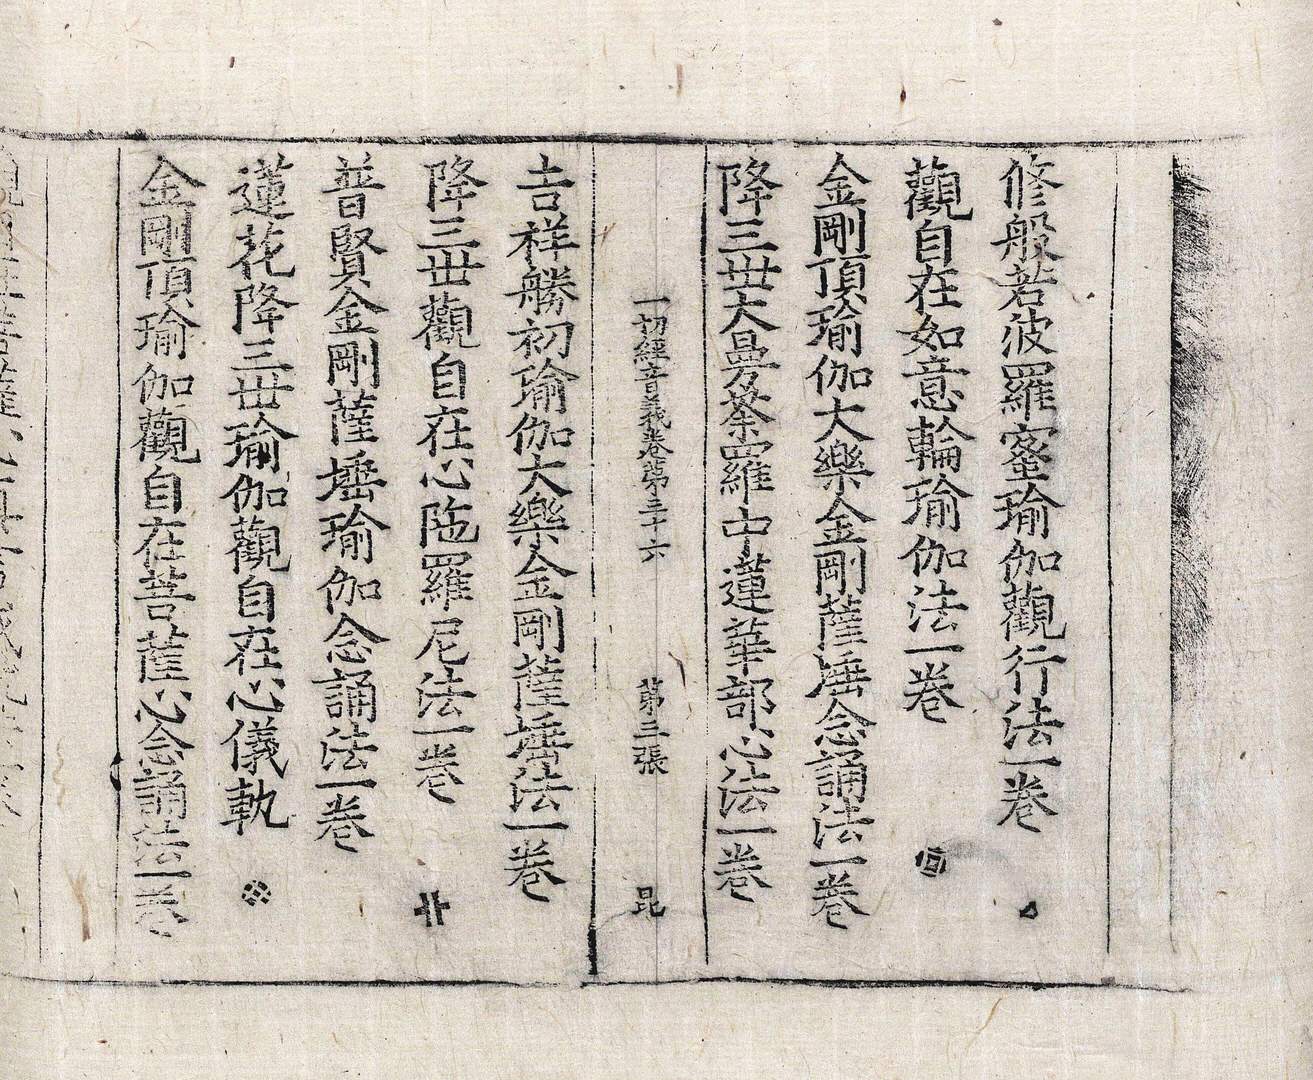 修般若波羅蜜瑜伽觀行法一卷
觀自在如意輪瑜伽法一卷
金剛頂瑜伽大樂金剛薩埵念誦法一卷
降三世大曼荼羅中蓮華部心法一卷
一切經音義卷第三十六 第三張 昆
吉祥勝初瑜伽大樂金剛薩埵法一卷
降三世觀自在心陁羅尼法一卷
普賢金剛薩埵瑜伽念誦法一卷
蓮花降三世瑜伽觀自在心儀軌
金剛頂瑜伽觀自在菩薩心念誦法一卷